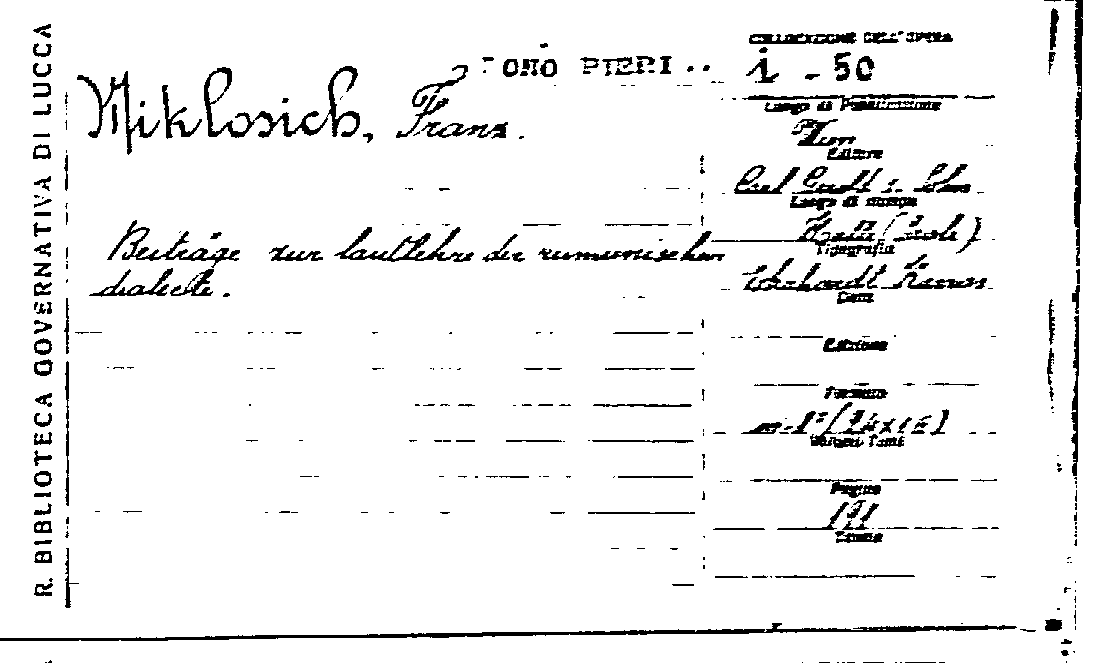 R. BIBLIOTECA GOVERNATIVA DI LUCCA
DONO PIERI
COLLOCAZIONE DELL'OPERA
i - 50
Miklosich, Franz.
Luogo di Pubblicazione
Wien
Editore
Carl Gerold's Sohn
Luogo di stampa
Halle (Saale)
Beiträge zur lautlehre der rumunischen
dialecte.
Tipografia
Ehrhardt Karras
Data
Edizione
Formato
m-8°(24x16)
Volumi Tomi
Pagine
191